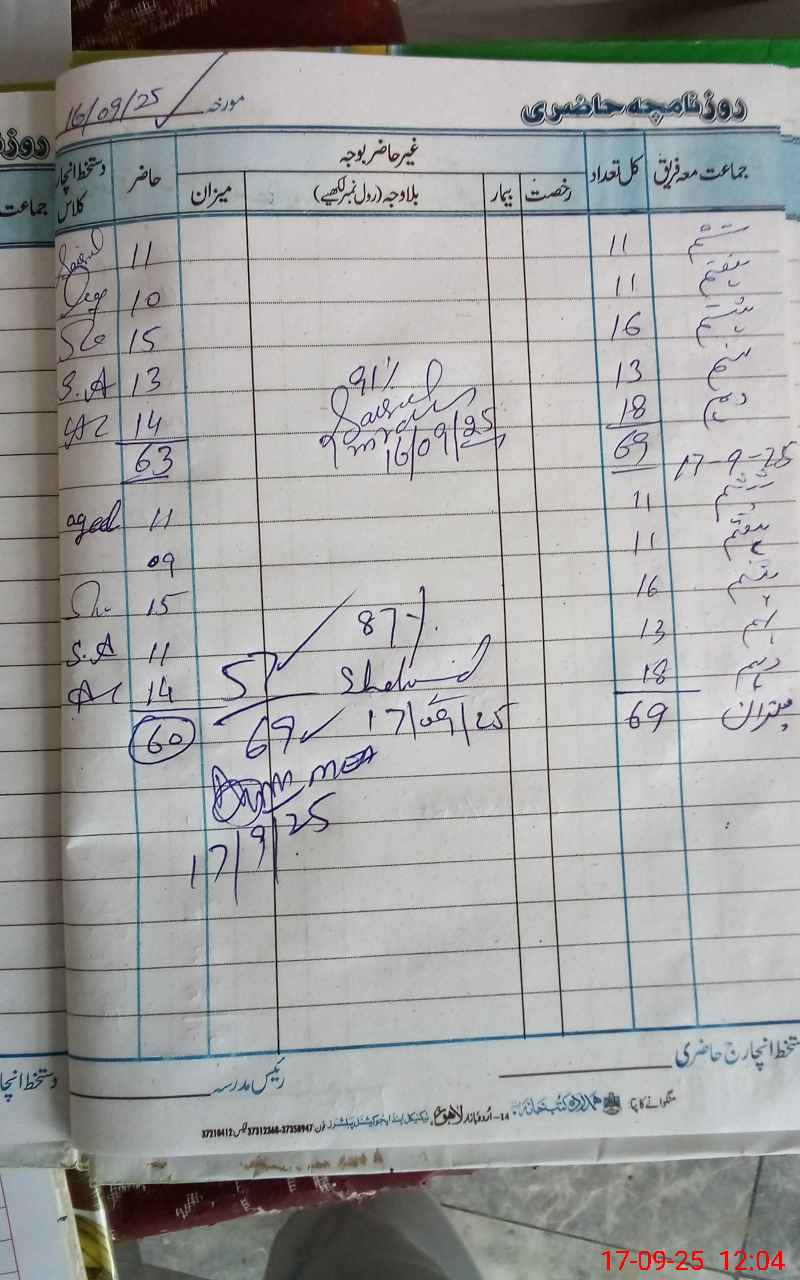 روزنامچہ حاضری
مورخہ 16/09/25
جماعت معہ فریق کل تعداد غیر حاضر بوجہ حاضر دستخط انچارج کلاس
رخصت بیمار بلاوجہ (رول نمبر لکھیے) میزان
ششم 11 11
ہفتم 11 10
ہشتم 16 15
نہم 13 13 S.A
دہم 18 14
69 63
91%
16/09/25
17-9-25
ششم 11 11
ہفتم 11 09
16 15
نہم 13 11 S.A
دہم 18 14
میزان 69 60
87%
57
69
Shahid
17/09/25
MEA
17/9/25
دستخط انچارج حاضری
رئیس مدرسہ
منگوانے کا پتہ: ہمدرد کتب خانہ 14-اردو بازار لاہور
37210412 37312368-37358947
17-09-25 12:04